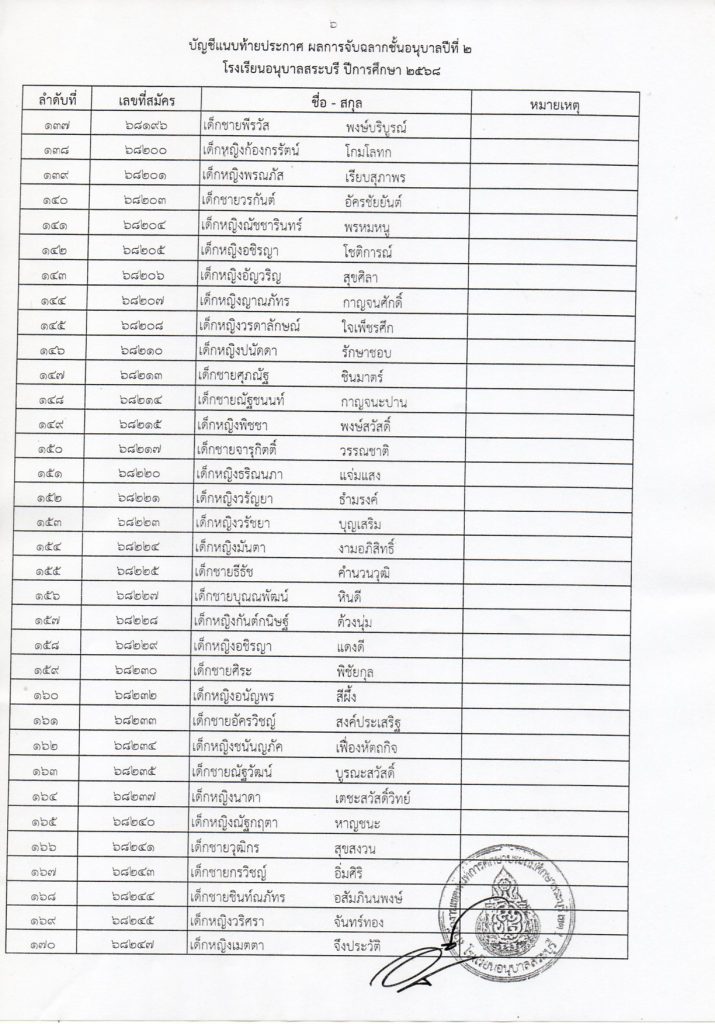 ๖
บัญชีแนบท้ายประกาศ ผลการจับฉลากชั้นอนุบาลปีที่ ๒
โรงเรียนอนุบาลสระบุรี ปีการศึกษา ๒๕๖๘
ลำดับที่ เลขที่สมัคร ชื่อ - สกุล หมายเหตุ
๑๓๗ ๖๘๑๙๖ เด็กชายพีรวัส พงษ์บริบูรณ์
๑๓๘ ๖๘๒๐๐ เด็กหญิงก้องกรรัตน์ โกมโลทก
๑๓๙ ๖๘๒๐๑ เด็กหญิงพรณภัส เรียบสุภาพร
๑๔๐ ๖๘๒๐๓ เด็กชายวรกันต์ อัครชัยยันต์
๑๔๑ ๖๘๒๐๔ เด็กหญิงณัชชารินทร์ พรหมหนู
๑๔๒ ๖๘๒๐๕ เด็กหญิงอชิรญา โชติการณ์
๑๔๓ ๖๘๒๐๖ เด็กหญิงอัญวริญ สุขศิลา
๑๔๔ ๖๘๒๐๗ เด็กหญิงญาณภัทร กาญจนศักดิ์
๑๔๕ ๖๘๒๐๘ เด็กหญิงวรดาลักษณ์ ใจเพ็ชรศึก
๑๔๖ ๖๘๒๑๐ เด็กหญิงปนัดดา รักษาชอบ
๑๔๗ ๖๘๒๑๓ เด็กชายศุภณัฐ ชินมาตร์
๑๔๘ ๖๘๒๑๔ เด็กชายณัฐชนนท์ กาญจนะปาน
๑๔๙ ๖๘๒๑๕ เด็กหญิงพิชชา พงษ์สวัสดิ์
๑๕๐ ๖๘๒๑๗ เด็กชายจารุกิตติ์ วรรณชาติ
๑๕๑ ๖๘๒๒๐ เด็กหญิงธริณนภา แจ่มแสง
๑๕๒ ๖๘๒๒๑ เด็กหญิงวรัญยา ธำมรงค์
๑๕๓ ๖๘๒๒๓ เด็กหญิงวรัชยา บุญเสริม
๑๕๔ ๖๘๒๒๔ เด็กหญิงมันตา งามอภิสิทธิ์
๑๕๕ ๖๘๒๒๕ เด็กชายธีธัช คำนวนวุฒิ
๑๕๖ ๖๘๒๒๗ เด็กชายบุณณพัฒน์ หินดี
๑๕๗ ๖๘๒๒๘ เด็กหญิงกันต์กนิษฐ์ ด้วงนุ่ม
๑๕๘ ๖๘๒๒๙ เด็กหญิงอชิรญา แดงดี
๑๕๙ ๖๘๒๓๐ เด็กชายศิระ พิชัยกุล
๑๖๐ ๖๘๒๓๒ เด็กหญิงอนัญพร สีผึ้ง
๑๖๑ ๖๘๒๓๓ เด็กชายอัครวิชญ์ สงค์ประเสริฐ
๑๖๒ ๖๘๒๓๔ เด็กหญิงชนันญภัค เฟื่องหัตถกิจ
๑๖๓ ๖๘๒๓๕ เด็กชายณัฐวัฒน์ บูรณะสวัสดิ์
๑๖๔ ๖๘๒๓๗ เด็กหญิงนาดา เตชะสวัสดิ์วิทย์
๑๖๕ ๖๘๒๔๐ เด็กหญิงณัฐกฤตา หาญชนะ
๑๖๖ ๖๘๒๔๑ เด็กชายวุฒิกร สุขสงวน
๑๖๗ ๖๘๒๔๓ เด็กชายกรวิชญ์ อิ่มศิริ
๑๖๘ ๖๘๒๔๔ เด็กชายชินท์ณภัทร อสัมภินนพงษ์
๑๖๙ ๖๘๒๔๕ เด็กหญิงวริศรา จันทร์ทอง
๑๗๐ ๖๘๒๔๗ เด็กหญิงเมตตา จึงประวัติ
โรงเรียนอนุบาลสระบุรี